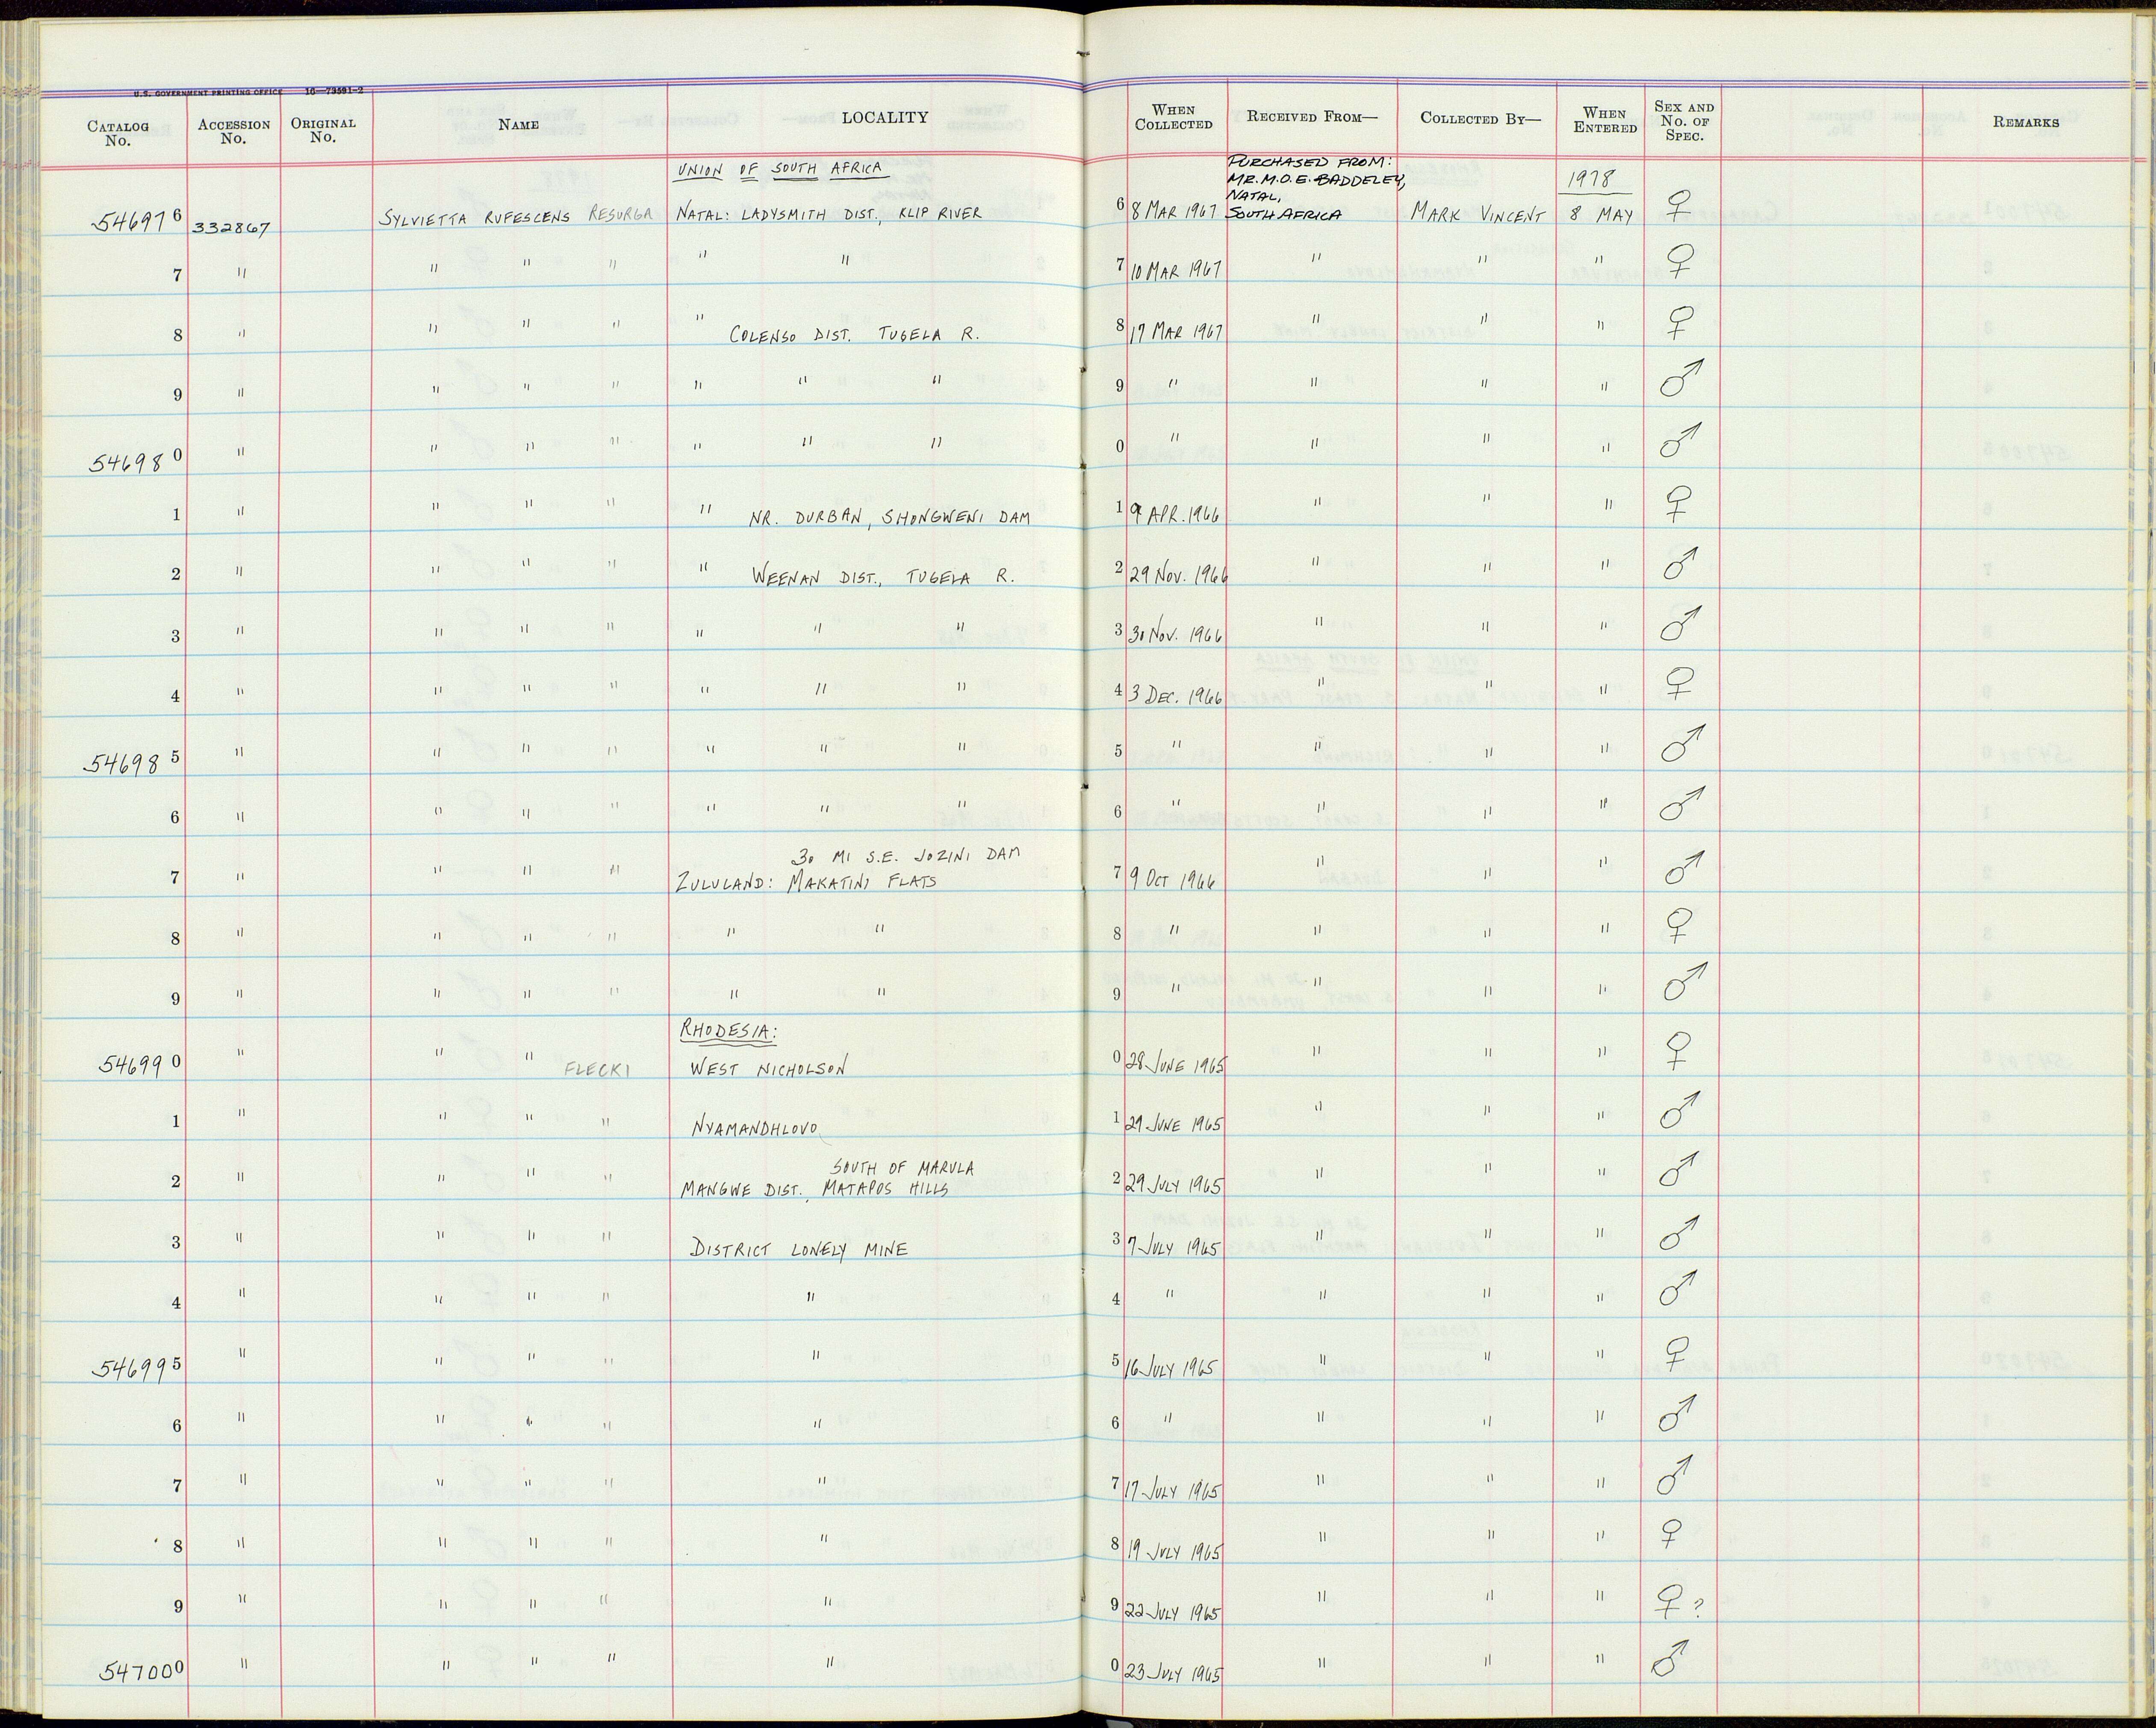 U.S. GOVERNMENT PRINTING OFFICE 16—73591-2
CATALOG No. ACCESSION No. ORIGINAL No. NAME LOCALITY WHEN COLLECTED RECEIVED FROM— COLLECTED BY— WHEN ENTERED SEX AND No. OF SPEC. REMARKS
UNION OF SOUTH AFRICA PURCHASED FROM: MR. M.O.E. BADDELEY, NATAL, SOUTH AFRICA 1978
546976 332867 SYLVIETTA RUFESCENS RESURGA NATAL: LADYSMITH DIST., KLIP RIVER 6 8 MAR 1967 MARK VINCENT 8 MAY ♀
7 " " " " " " 7 10 MAR 1967 " " " ♀
8 " " " " " COLENSO DIST. TUGELA R. 8 17 MAR 1967 " " " ♀
9 " " " " " " " 9 " " " " ♂
546980 " " " " " " " 0 " " " " ♂
1 " " " " " NR. DURBAN, SHONGWENI DAM 1 9 APR. 1966 " " " ♀
2 " " " " " WEENAN DIST., TUGELA R. 2 29 NOV. 1966 " " " ♂
3 " " " " " " " 3 30 NOV. 1966 " " " ♂
4 " " " " " " " 4 3 DEC. 1966 " " " ♀
546985 " " " " " " " 5 " " " " ♂
6 " " " " " " " 6 " " " " ♂
30 MI S.E. JOZINI DAM
7 " " " " ZULULAND: MAKATINI FLATS 7 9 OCT 1966 " " " ♂
8 " " " " " " 8 " " " " ♀
9 " " " " " " 9 " " " " ♂
RHODESIA:
546990 " " " FLECKI WEST NICHOLSON 0 28 JUNE 1965 " " " ♀
1 " " " " NYAMANDHLOVO 1 29 JUNE 1965 " " " ♂
SOUTH OF MARULA
2 " " " " MANGWE DIST., MATAPOS HILLS 2 29 JULY 1965 " " " ♂
3 " " " " DISTRICT LONELY MINE 3 7 JULY 1965 " " " ♂
4 " " " " " 4 " " " " ♂
546995 " " " " " 5 16 JULY 1965 " " " ♀
6 " " " " " 6 " " " " ♂
7 " " " " " 7 17 JULY 1965 " " " ♂
8 " " " " " 8 19 JULY 1965 " " " ♀
9 " " " " " 9 22 JULY 1965 " " " ♀ ?
547000 " " " " " 0 23 JULY 1965 " " " ♂